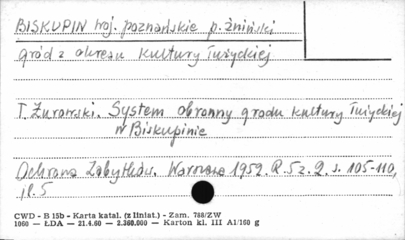 BISKUPIN woj. poznańskie p. żniński
gród z okresu kultury łużyckiej
T. Żurowski. System obronny grodu kultury łużyckiej
w Biskupinie
Ochrona Zabytków. Warszawa 1952. R. 5 z. 2. s. 105-110,
il. 5
CWD - B 15b - Karta katal. (z liniat.) - Zam. 788/ZW
1060 — ŁDA — 21.4.60 - 2.360.000 — Karton kl. III A1/160 g